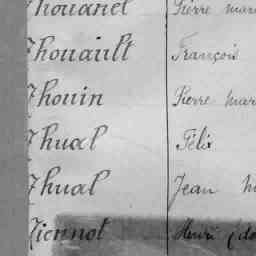 Thouanet Pierre mar
Thouault François
Thouin Pierre mar
Thual Félix
Thual Jean
Tiennot Henri (do